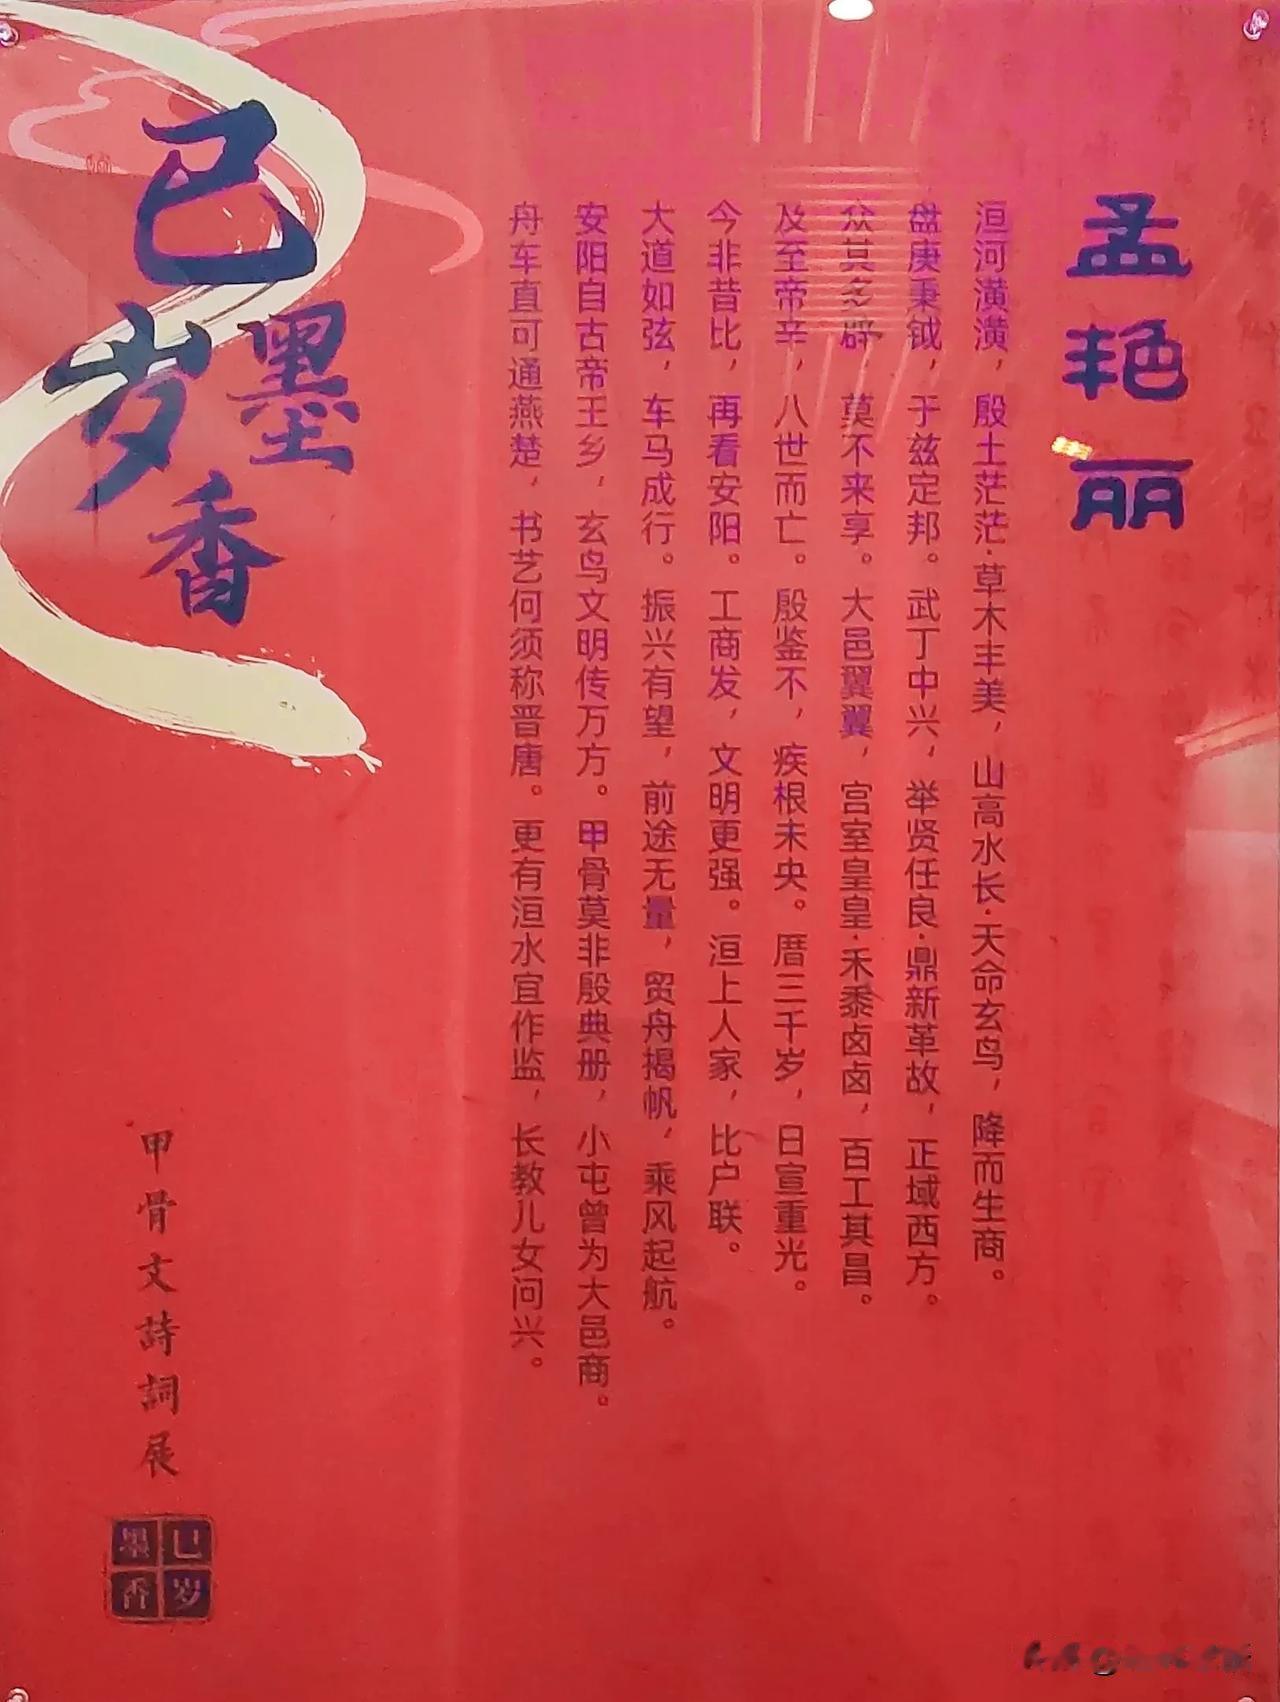 孟艳丽
洹河潢潢，殷土茫茫.草木丰美，山高水长.天命玄鸟，降而生商。
盘庚秉钺，于兹定邦。武丁中兴，举贤任良.鼎新革故，正域西方。
众其多辟，莫不来享。大邑翼翼，宫室皇皇.禾黍卤卤，百工其昌。
及至帝辛，八世而亡。殷鉴不，疾根未央。厝三千岁，日宣重光。
今非昔比，再看安阳。工商发，文明更强。洹上人家，比户联。
大道如弦，车马成行。振兴有望，前途无量，贸舟揭帆，乘风起航。
安阳自古帝王乡，玄鸟文明传万方。甲骨莫非殷典册，小屯曾为大邑商。
舟车直可通燕楚，书艺何须称晋唐。更有洹水宜作监，长教儿女问兴。
巳岁墨香
甲骨文詩詞展
巳岁墨香